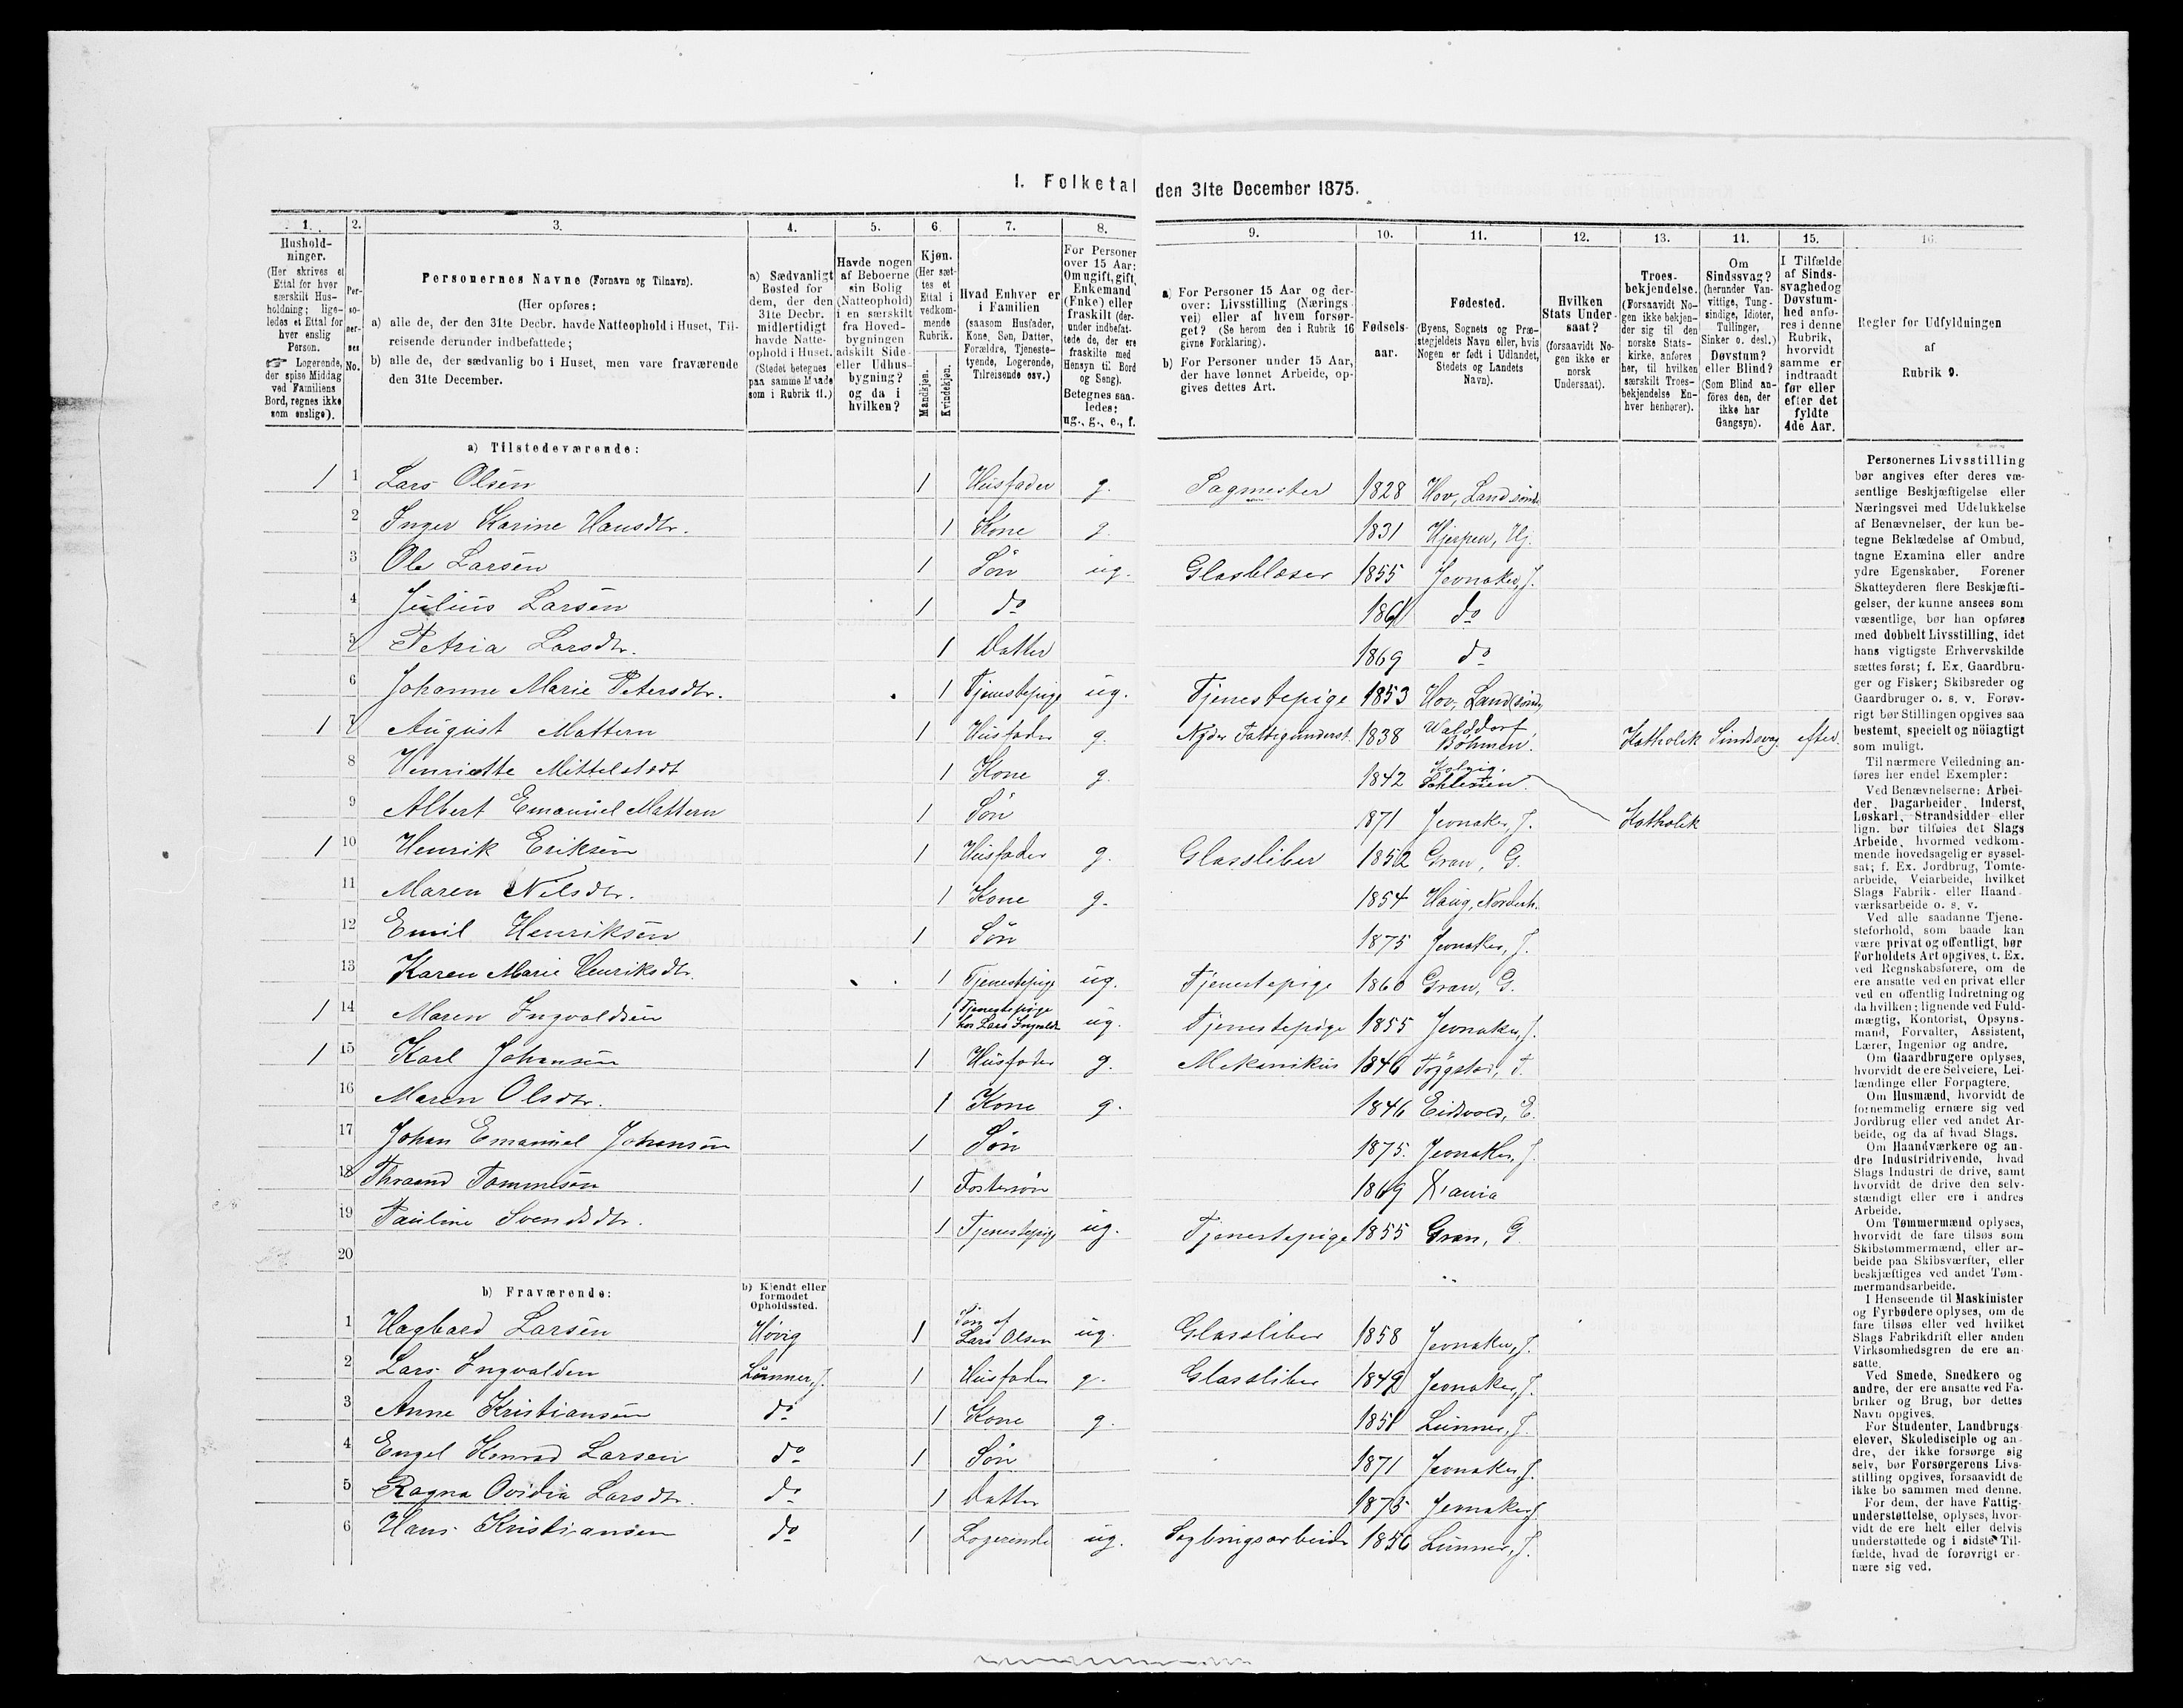 I. Folketal den 31te December 1875.
1. 2. 3. 4. 5. 6. 7. 8. 9. 10. 11. 12. 13. 14. 15. 16.
Hushold-
ninger.
(Her skrives et
Ettal for hver
særskilt Hus-
holdning; lige-
ledes et Ettal for
hver enslig
Person.
☞ Logerende,
der spise Middag
ved Familiens
Bord, regnes ikke
som enslige).
Per-
so-
ner-
nes
No.
Personernes Navne (Fornavn og Tilnavn).
(Her opføres:
a) alle de, der den 31te Decbr. havde Natteophold i Huset, Til-
reisende derunder indbefattede;
b) alle de, der sædvanlig bo i Huset, men vare fraværende
den 31te December.
a) Sædvanligt
Bosted for
dem, der den
31te Decbr.
midlertidigt
havde Natte-
ophold i Huset.
(Stedet betegnes
paa samme Maade
som i Rubrik 11.)
Havde nogen
af Beboerne
sin Bolig
(Natteophold)
i en særskilt
fra Hoved-
bygningen
adskilt Side-
eller Udhus-
bygning?
og da i
hvilken?
Kjøn.
(Her sæt-
tes et
Ettal i
vedkom-
mende
Rubrik.
Mandkjøn.
Kvindekjøn.
Hvad Enhver er
i Familien
(saasom Husfader,
Kone, Søn, Datter,
Forældre, Tjeneste-
tyende, Logerende,
Tilreisende osv.)
For Personer
over 15 Aar:
Om ugift, gift,
Enkemand
(Enke) eller
fraskilt (der-
under indbefat-
tede de, der ere
fraskilte med
Hensyn til Bord
og Seng).
Betegnes saa-
ledes:
ug., g., e., f.
a) For Personer 15 Aar og der-
over: Livsstilling (Nærings-
vei) eller af hvem forsør-
get? (Se herom den i Rubrik 16
givne Forklaring).
b) For Personer under 15 Aar,
der have lønnet Arbeide, op-
gives dettes Art.
Fødsels-
aar.
Fødested.
(Byens, Sognets og Præ-
stegjeldets Navn eller, hvis
Nogen er født i Udlandet,
Stedets og Landets
Navn).
Hvilken
Stats Under-
saat?
(forsaavidt No-
gen ikke er
norsk
Undersaat).
Troes-
bekjendelse.
(Forsaavidt No-
gen ikke bekjen-
der sig til den
norske Stats-
kirke, anføres
her, til hvilken
særskilt Troes-
bekjendelse En-
hver henhører).
Om
Sindssvag?
(herunder Van-
vittige, Tung-
sindige, Idioter,
Tullinger,
Sinker o. desl.)
Døvstum?
eller Blind?
(Som Blind an-
føres den, der
ikke har
Gangsyn).
I Tilfælde
af Sinds-
svaghed og
Døvstum-
hed anfø-
res i denne
Rubrik,
hvorvidt
samme er
indtraadt
før eller
efter det
fyldte
4de Aar.
Regler for Udfyldningen
af
Rubrik 9.
a) Tilstedeværende:
1 1 Lars Olsen 1 Husfader g. Sagmester 1828 Hov, Land søndr
2 Inger Karine Hansdtr. 1 Kone g. 1831 Hjerpen, Hj.
3 Ole Larsen 1 Søn ug. Glasblæser 1855 Jevnaker, J.
4 Julius Larsen 1 do 1861 do
5 Petria Larsdtr. 1 Datter 1869 do
6 Johanne Marie Petersdtr. 1 Tjenestepige ug. Tjenestepige 1853 Hov, Land (søndr
1 7 August Mattern 1 Husfader g. Nyder Fattigunderst. 1838 Walddorf, Bøhmen. Katholik Sindssvag efter.
8 Henriette Mittelstedt 1 Kone g. 1842 Schlesien.
9 Albert Emanuel Mattern 1 Søn 1871 Jevnaker, J. Katholik
1 10 Henrik Eriksen 1 Husfader g. Glassliber 1852 Gran, G.
11 Maren Nilsdtr. 1 Kone g. 1854 Haug, Norderh.
12 Emil Henriksen 1 Søn 1875 Jevnaker, J.
13 Karen Marie Henriksdtr. 1 Tjenestepige ug. Tjenestepige 1860 Gran, G.
1 14 Maren Ingvaldsen 1 Tjenestepige hos Lars Ingvalds. ug. Tjenestepige 1855 Jevnaker, J.
1 15 Karl Johansen 1 Husfader g. Mekanikus 1846 T.
16 Maren Olsdtr. 1 Kone g. 1846 Eidsvold, E.
17 Johan Emanuel Johansen 1 Søn 1875. Jevnaker, J.
18 Thraand Tommesen 1 Fostersøn 1869 X'ania
19 Pauline Svendsdtr. 1 Tjenestepige ug. Tjenestepige 1855 Gran, G.
20
b) Fraværende:
b) Kjendt eller
formodet
Opholdssted.
1 Hagbard Larsen Høvig 1 Søn af Lars Olsen ug. Glassliber 1858 Jevnaker, J.
2 Lars Ingvalden Lunner, J. 1 Husfader g. Glassliber 1849 Jevnaker, J.
3 Anne Kristiansen do 1 Kone g. 1851 Lunner, J.
4 Engel Konrad Larsen do 1 Søn 1871 Jevnaker, J.
5 Ragna Ovidia Larsdtr. do 1 Datter 1875 Jevnaker J
6 Hans Kristiansen do 1 Logerende ug. Sagbrugsarbeider 1856 Lunner, J.
Personernes Livsstilling
bør angives efter deres væ-
sentlige Beskjæftigelse eller
Næringsvei med Udelukkelse
af Benævnelser, der kun be-
tegne Beklædelse af Ombud,
tagne Examina eller andre
ydre Egenskaber. Forener
Skatteyderen flere Beskjæfti-
gelser, der kunne ansees som
væsentlige, bør han opføres
med dobbelt Livsstilling, idet
hans vigtigste Erhvervskilde
sættes først; f. Ex. Gaardbru-
ger og Fisker; Skibsreder og
Gaardbruger o. s. v. Forøv-
rigt bør Stillingen opgives saa
bestemt, specielt og nöiagtigt
som muligt.
Til nærmere Veiledning an-
føres her endel Exempler:
Ved Benævnelserne: Arbei-
der, Dagarbeider, Inderst,
Løskarl, Strandsidder eller
lign. bør tilføies det Slags
Arbeide, hvormed vedkom-
mende hovedsagelig er syssel-
sat; f. Ex. Jordbrug, Tomte-
arbeide, Veiarbeide, hvilket
Slags Fabrik- eller Haand-
værksarbeide o. s. v.
Ved alle saadanne Tjene-
steforhold, som baade kan
være privat og offentligt, bør
Forholdets Art opgives, t. Ex.
ved Regnskabsførere, om de
ere ansatte ved en privat eller
ved en offentlig Indretning og
da hvilken; lignende ved Fuld-
mægtig, Kontorist, Opsyns-
mand, Forvalter, Assistent,
Lærer, Ingeniør og andre.
Om Gaardbrugere oplyses,
hvorvidt de ere Selveiere, Lei-
lændinge eller Forpagtere.
Om Husmænd, hvorvidt de
fornemmelig ernære sig ved
Jordbrug eller ved andet Ar-
beide, og da af hvad Slags.
Om Haandværkere og an-
dre Industridrivende, hvad
Slags Industri de drive, samt
hvorvidt de drive den selv-
stændigt eller ere i andres
Arbeide.
Om Tømmermænd oplyses,
hvorvidt de fare tilsøs som
Skibstømmermænd, eller ar-
beide paa Skibsværfter, eller
beskjæftiges ved andet Tøm-
mermandsarbeide.
I Henseende til Maskinister
og Fyrbødere oplyses, om de
fare tilsøs eller ved hvilket
Slags Fabrikdrift eller anden
Virksomhedsgren de ere an-
satte.
Ved Smede, Snedkere og
andre, der ere ansatte ved Fa-
briker og Brug, bør dettes
Navn opgives.
For Studenter, Landbrugs-
elever, Skoledisciple og an-
dre, der ikke forsørge sig
selv, bør Forsørgerens Livs-
stilling opgives, forsaavidt de
ikke bo sammen med denne.
For dem, der have Fattig-
understøttelse, oplyses, hvor-
vidt de ere helt eller delvis
understøttede og i sidste Til-
fælde, hvad de forøvrigt er-
nære sig ved.